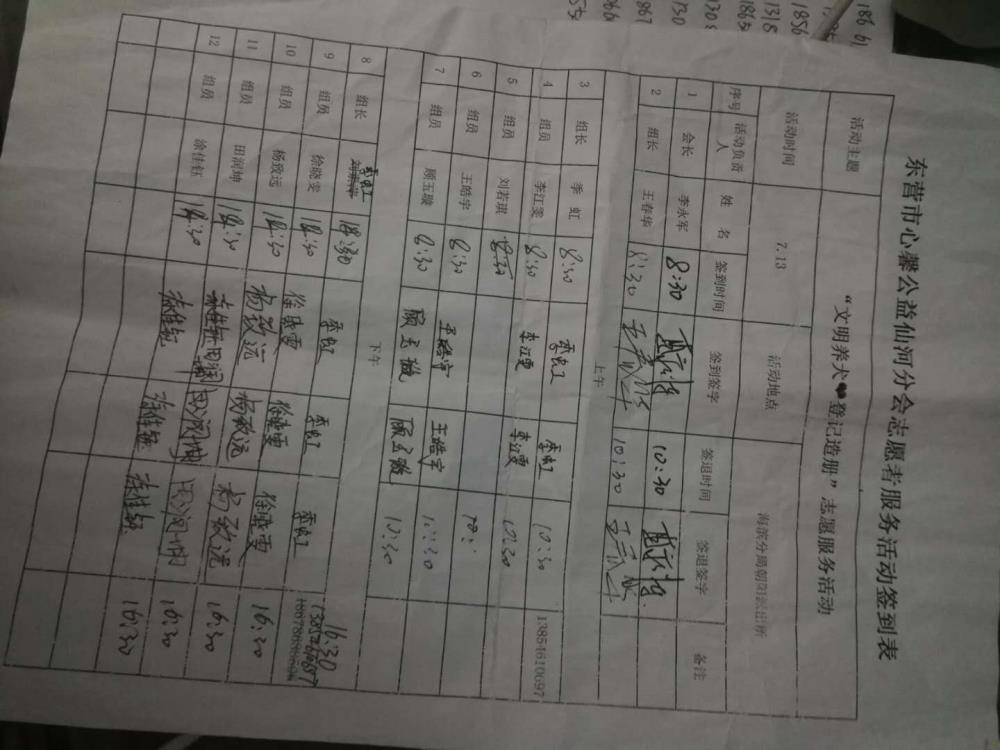 东营市心馨公益仙河分会志愿者服务活动签到表
活动主题 “文明养犬 登记造册”志愿服务活动
活动时间 7.13 活动地点 海滨分局朝阳派出所
序号 活动负责人 姓 名 签到时间 签到签字 签退时间 签退签字 备注
1 会长 李永军 8:30 10:30
2 组长 王春华 8:30 王春华 10:30
上午
3 组长 季 虹 8:30 季虹 季虹 10:30 13854610697
4 组员 李江雯 8:30 李江雯 李江雯 10:30
5 组员 刘若琪 8:30
6 组员 王皓宇 8:30 王皓宇 王皓宇 10:30
7 组员 顾玉璇 8:30 顾玉璇 顾玉璇 10:30
下午
8 组长 季虹 14:30 季虹 季虹 季虹 16:30
9 组员 徐晓雯 14:30 徐晓雯 徐晓雯 徐晓雯 16:30
10 组员 杨致远 14:30 杨致远 杨致远 杨致远 16:30
11 组员 田润坤 14:30 田润坤 田润坤 16:30
12 组员 涂佳钰 14:30 涂佳钰 涂佳钰 涂佳钰 16:30